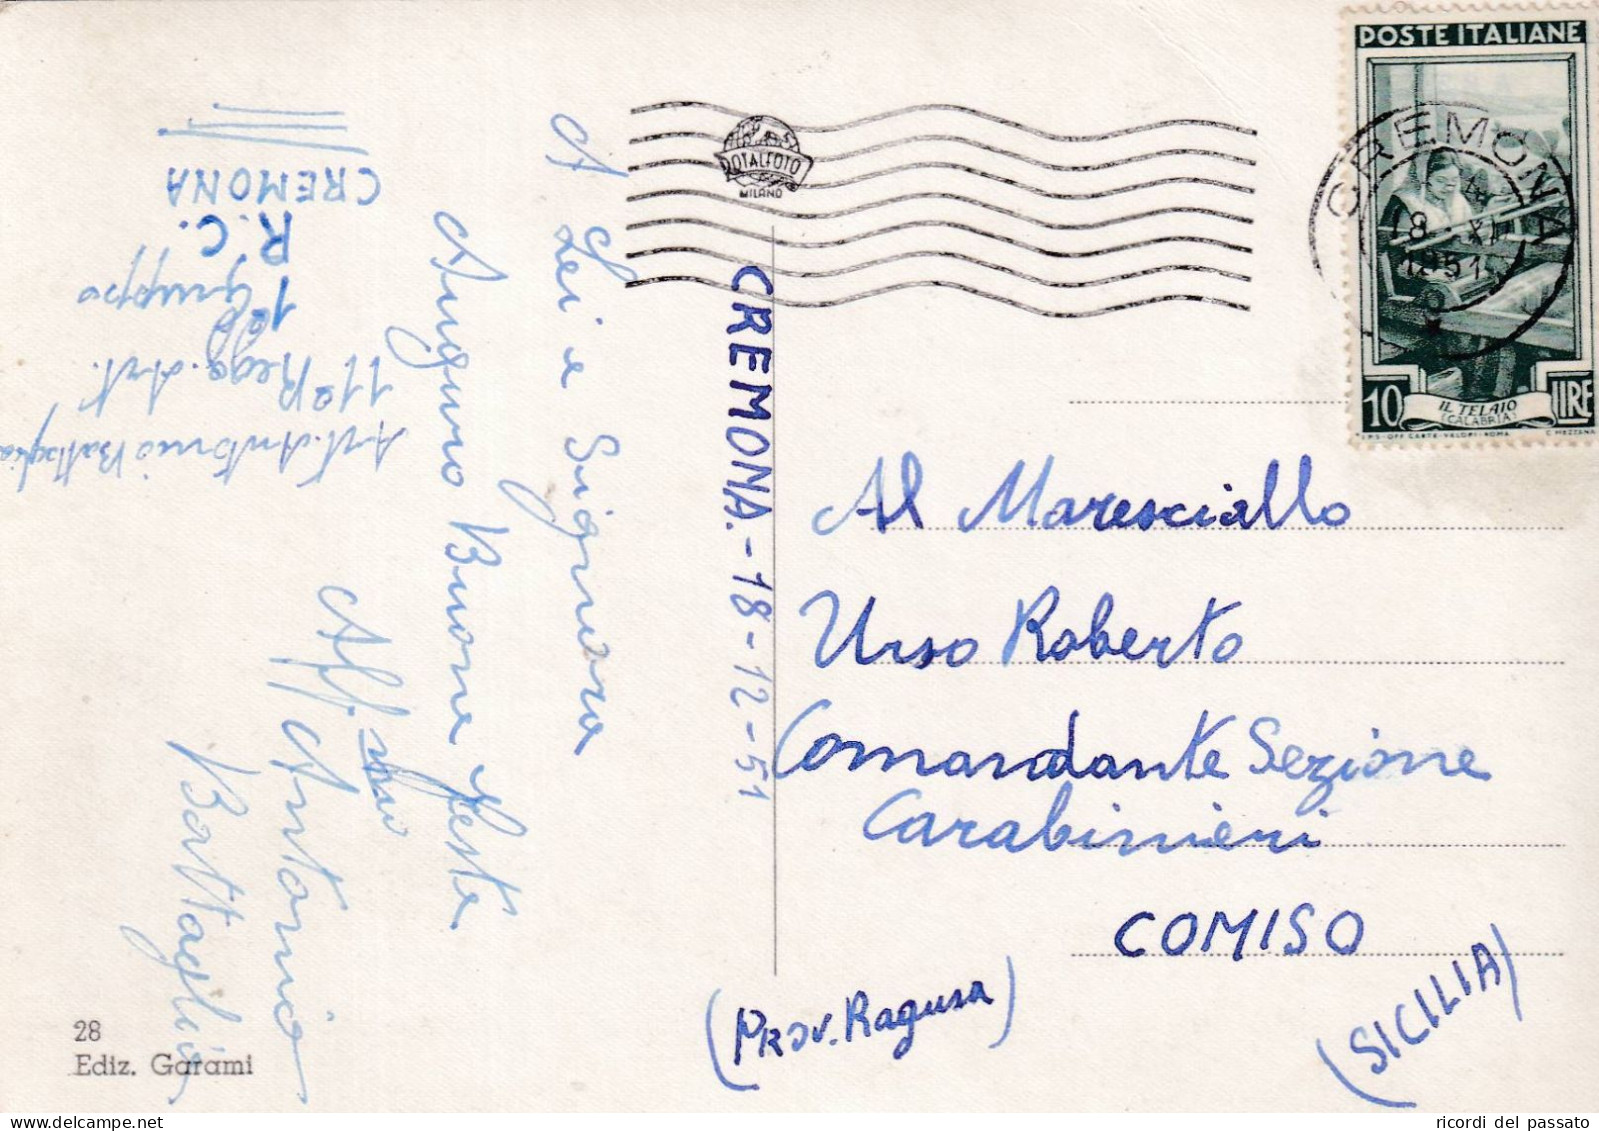 POSTE ITALIANE
10 LIRE
IL TELAIO
(CALABRIA)
I.P.S.-OFF. CARTE-VALORI-ROMA C. MEZZANA
CREMONA
18 XII
1951
ROTALFOTO
MILANO
A Lei e Signora
Auguro Buone Feste
Aff.mo
Antonio
Battaglia
Art. Antonio Battaglia
11º Regg. Art.
1º Gruppo
R.C.
CREMONA
CREMONA.-18-12-51
Al Maresciallo
Urso Roberto
Comandante Sezione
Carabinieri
COMISO
(PROV. Ragusa)
(SICILIA)
28
Ediz. Garami
ricordi del passato